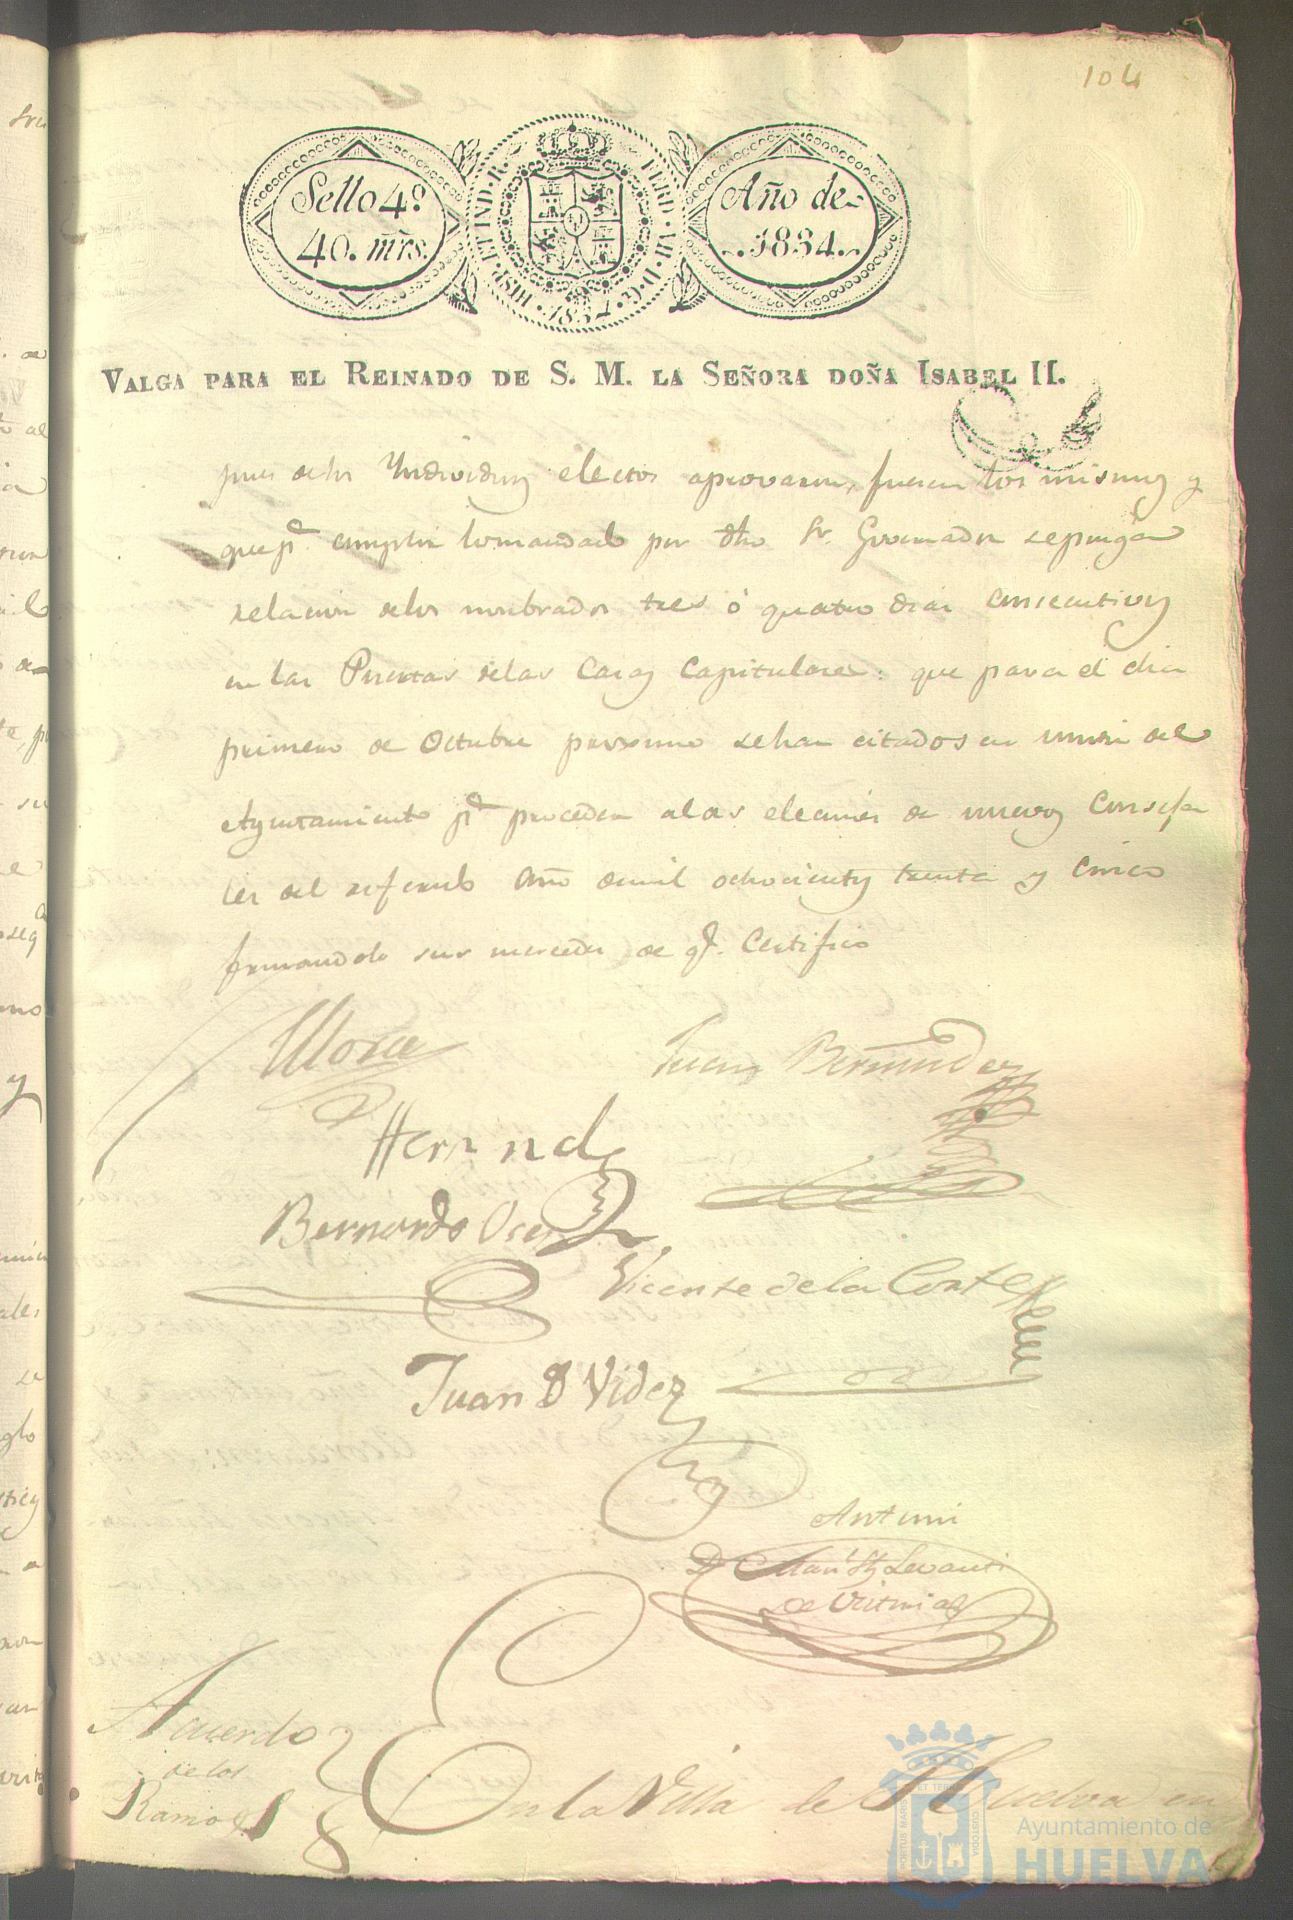 104
Sello 4º
40. mrs.
HISP. ET IND. R. FERD. VII. D. G. 1834
Año de
1834.
VALGA PARA EL REINADO DE S. M. LA SEÑORA DOÑA ISABEL II.
pues delos Yndividuos electos aprovaron, fueran los mismos y
que pª. cumplir lo mandado por dho Sr. Governador se ponga
relacion delos nombrados tres ó quatro dias consecutivos
en las Puertas delas Casas Capitulares: que para el dia
primero de Octubre proximo se han citados en union del
Ayuntamiento pª proceder alas elecciones de nuevos Conseja
les del referido año demil ochocientos treinta y cinco
firmandolo sus mercedes de qe. Certifico
Mora
Juan Bermudez
Hernandz
Bernardo
Vicente de la Corte
Juan D Videz
Antemi
de
Acuerdo
de los
Ramos
En la Villa de Huelva en
PORTUS MARIS ET TERRAE CUSTODIA
Ayuntamiento de
HUELVA